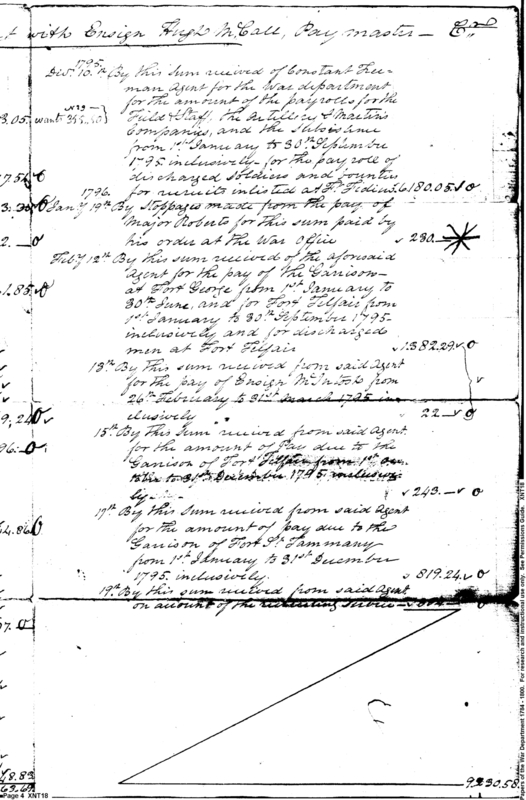 t with Ensign Hugh McCall, Pay master — Cr
1795.
Decr. 10.th By this Sum received of Constant Free-
man Agent for the War department
for the amount of the payrolls for the
3.05. wants Field & Staff, the Artillery & Martin's
Companies, and the Subsistence
from 1st January to 30th September
1795 inclusively — for the pay role of
7.54 0 discharged Soldiers and bounties
1796. for recruits inlisted at Ft. Fidius. 6.180.05. 0
Jany. 19th By Stoppages made from the pay of
Major Roberts for this sum paid by
2. — 0 his order at the War Office 230. —
Feby. 12th By this sum received of the aforesaid
Agent for the pay of the Garrison —
1.85. 0 at Fort George from 1st January to
30th June, and for Fort Telfair from
1st January to 30th September 1795
inclusively and for discharged
men at Fort Telfair 1.382.29. 0
13th By this sum received from said Agent
for the pay of Ensign McIntosh from
26th February to 31st March 1795 in-
9.24 0 clusively 22. — 0
15th By this Sum received from said Agent
for the amount of Pay due to the
96. 0 Garrison of Fort Telfair from 1st
to 31st December 1795 inclusive-
ly — 243. — 0
17th By this Sum received from said Agent
4.86 0 for the amount of pay due to the
Garrison of Fort St. Tammany
from 1st January to 31st December
1795. inclusively. 819.24. 0
19th By this sum received from said Agent
on account of the recruiting Service — 0
7. 0
9230.58
48.83
Page 4 XNT18
Papers of the War Department 1784 - 1800. For research and instructional use only. See Permissions Guide. XNT18